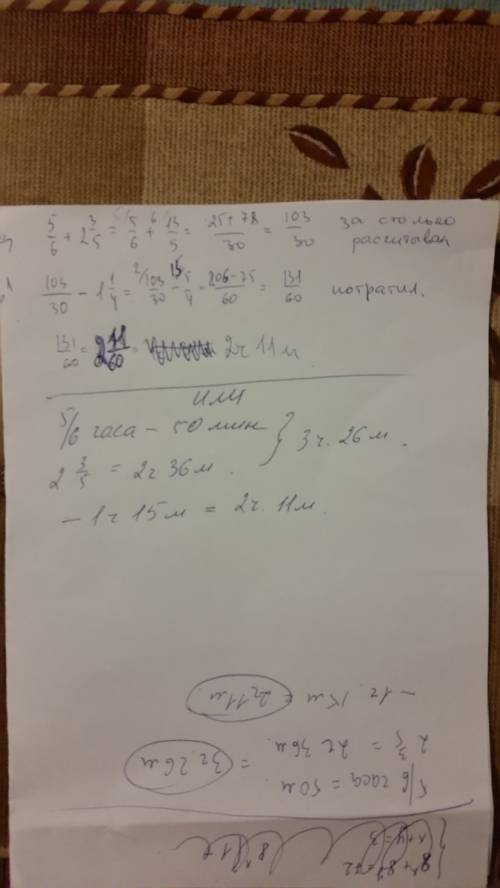 5/6 + 2 3/5 = 5/6 + 13/5 = (25+78)/30 = 103/30 за столько
расчитывал
103/30 - 1 1/4 = 103/30 - 5/4 = (206-75)/60 = 131/60 потратил.
131/60 = 2 11/60 = 2ч 11м
или
5/6 часа - 50 мин } 3ч. 26м.
2 3/5 = 2ч 36м.
- 1ч 15м = 2ч. 11м.
- 1ч. 15м = 2ч 11м.
2 3/5 = 2ч 36м. = 3ч 26м
5/6 часа = 50м